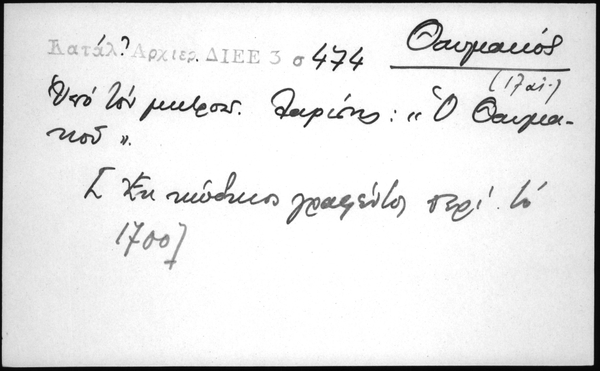 Κατάλ? Αρχιερ. ΔΙΕΕ 3 σ 474
Θαυμακός
(17 αι.)
Υπό τόν μητροπ. Λαρίσης: "Ὁ Θαυμα-
κοῦ".
[Ἐκ κώδικος γραφέντος περί τό
1700]